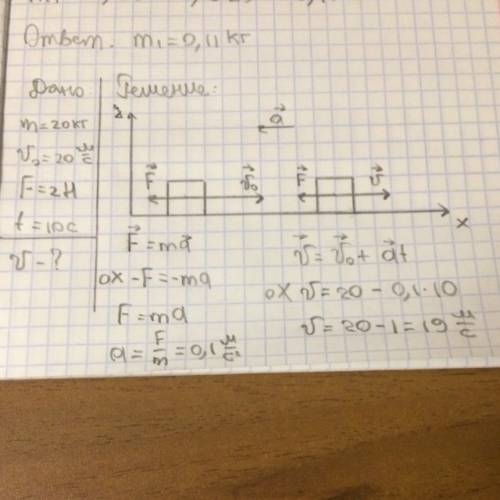 Ответ. m₁=0,11кг
Дано:
m=20кг
v₀=20 м/с
F=2Н
t=10с
v-?
Решение:
y
a⃗
F⃗ v⃗₀
F⃗ v⃗
x
F⃗=ma⃗
ox -F=-ma
F=ma
a=F/m=0,1 м/с²
v⃗=v⃗₀+a⃗t
ox v=20-0,1·10
v=20-1=19 м/с